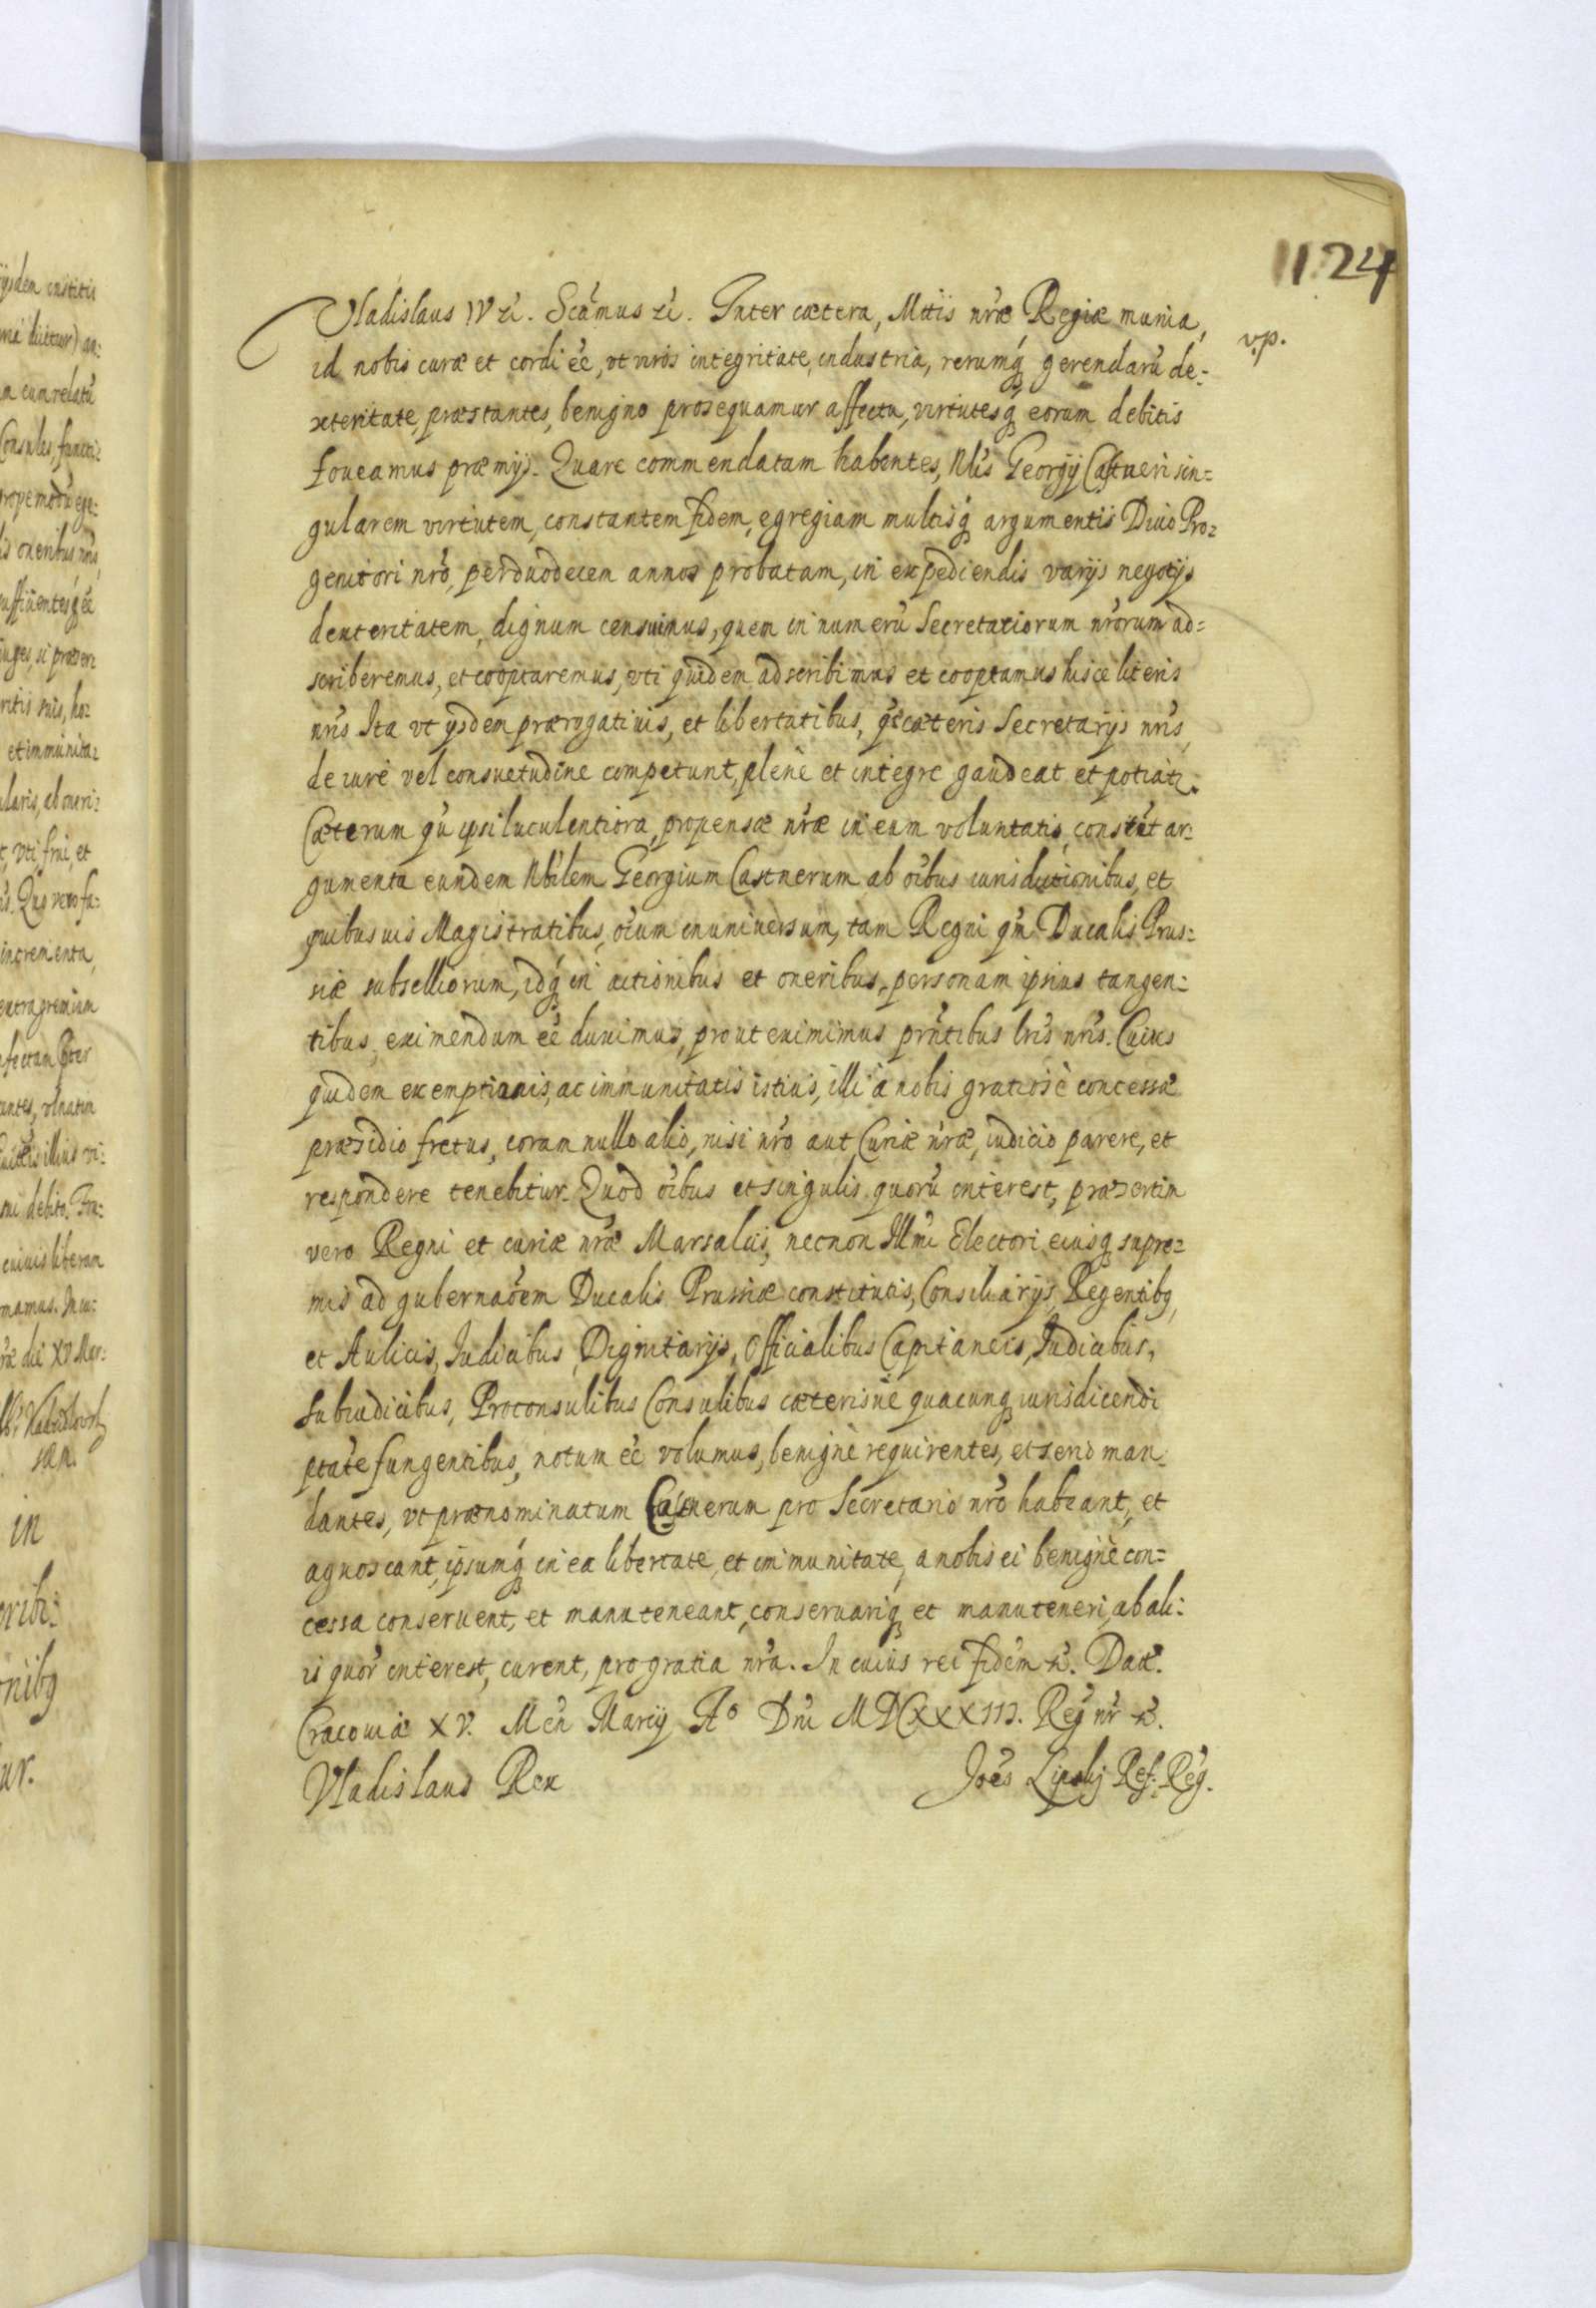 1124
v.p.
Vladislaus IV etc. Scamus etc. Inter cætera, Mttis nræ Regiæ munia,
id nobis curæ et cordi eé, vt viros integritate, industria, rerumq́ gerendarū de-
xteritate, præstantes, benigno prosequamur affectu, virtutesq́ eorum debitis
foueamus præmijs. Quare commendatam habentes, Nlis Georgij Castneri sin=
gularem virtutem, constantem fidem, egregiam multisq́ argumentis Diuo Pro=
genitori nrō, perduodecem annos probatam, in expediendis varijs negotijs
dexteritatem, dignum censuimus, quem in numerū Secretariorum nrōrum ad=
scriberemus, et cooptaremus, vti quidem adscribimus et cooptamus hisce literis
nrīs Ita vt ysdem prærogatiuis, et libertatibus, q̄ cæteris Secretarijs nrīs,
de iure vel consuetudine competunt, plenè et integrè gaudeat et potiatr.
Cæterum qū ipsi luculentiora, propensæ nrǣ in eum voluntatis, constēt ar=
gumenta eundem Nbilem Georgium Castnerum ab oībus iurisdictionibus, et
quibusuis Magistratibus, oīum inuniuersum, tam Regni qm̄ Ducalis Prus=
siæ subselliorum, idq́ in actionibus et oneribus, personam ipsius tangen=
tibus, eximendum eé duximus, prout eximimus prn̄tibus lrīs nrīs. Cuius
quidem exemptionis, ac immunitatis istius, illi à nobis gratiosè concessæ
præsidio fretus, coram nullo alio, nisi nrō aut Curiæ nrǣ, iudicio parere, et
respondere tenebitur. Quod oībus et singulis quorū interest, præsertim
vero Regni et curiæ nrǣ Marsalcis, necnon Illm̄i Electori eiusq́ supre=
mis ad gubernaōem Ducalis Prussiæ constitutis, Consiliarijs, Regentibq,
et Aulicis, Iudicibus, Dignitarijs, Officialibus Capitaneis, Iudicibus,
Subiudicibus, Proconsulibus Consulibus cæterisue quacunq́ iurisdicendi
ptāte fungentibus, notum eé volumus, benignè requirentes, et serio man-
dantes, vt prænominatum Castnerum pro Secretario nrō habeant, et
agnoscant, ipsumq́ in ea libertate, et immunitate, a nobis ei benignè con=
cessa conseruent, et manuteneant, conseruariq́ et manuteneri, ab ali=
is quor̄ interest, curent, pro gratia nrā. In cuius rei fidem etc. Dat.
Cracouiæ XV. Men̄ Marij Aº Dnī MDCXXXIII. Reḡ nr̄ etc.
Vladislaus Rex
Joēs Lipskij Ref. Reg.